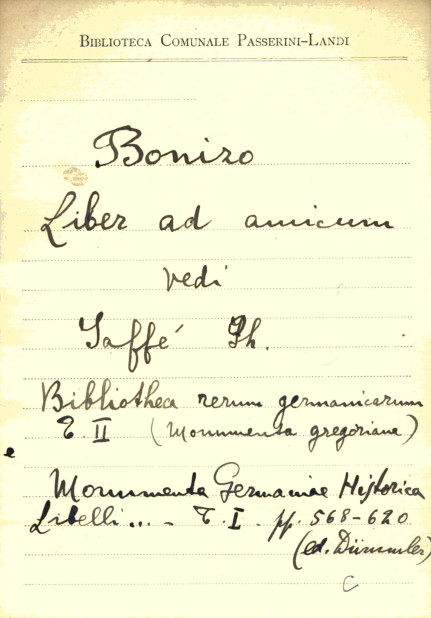 BIBLIOTECA COMUNALE PASSERINI-LANDI
Bonizo
Liber ad amicum
vedi
Jaffé Ph.
Bibliothea rerum germanicarum
T II (Monumenta gregoriane)
e
Monumenta Germaniae Historica
Libelli... - T. I. pp. 568-620
(ed. Dümmler)
C